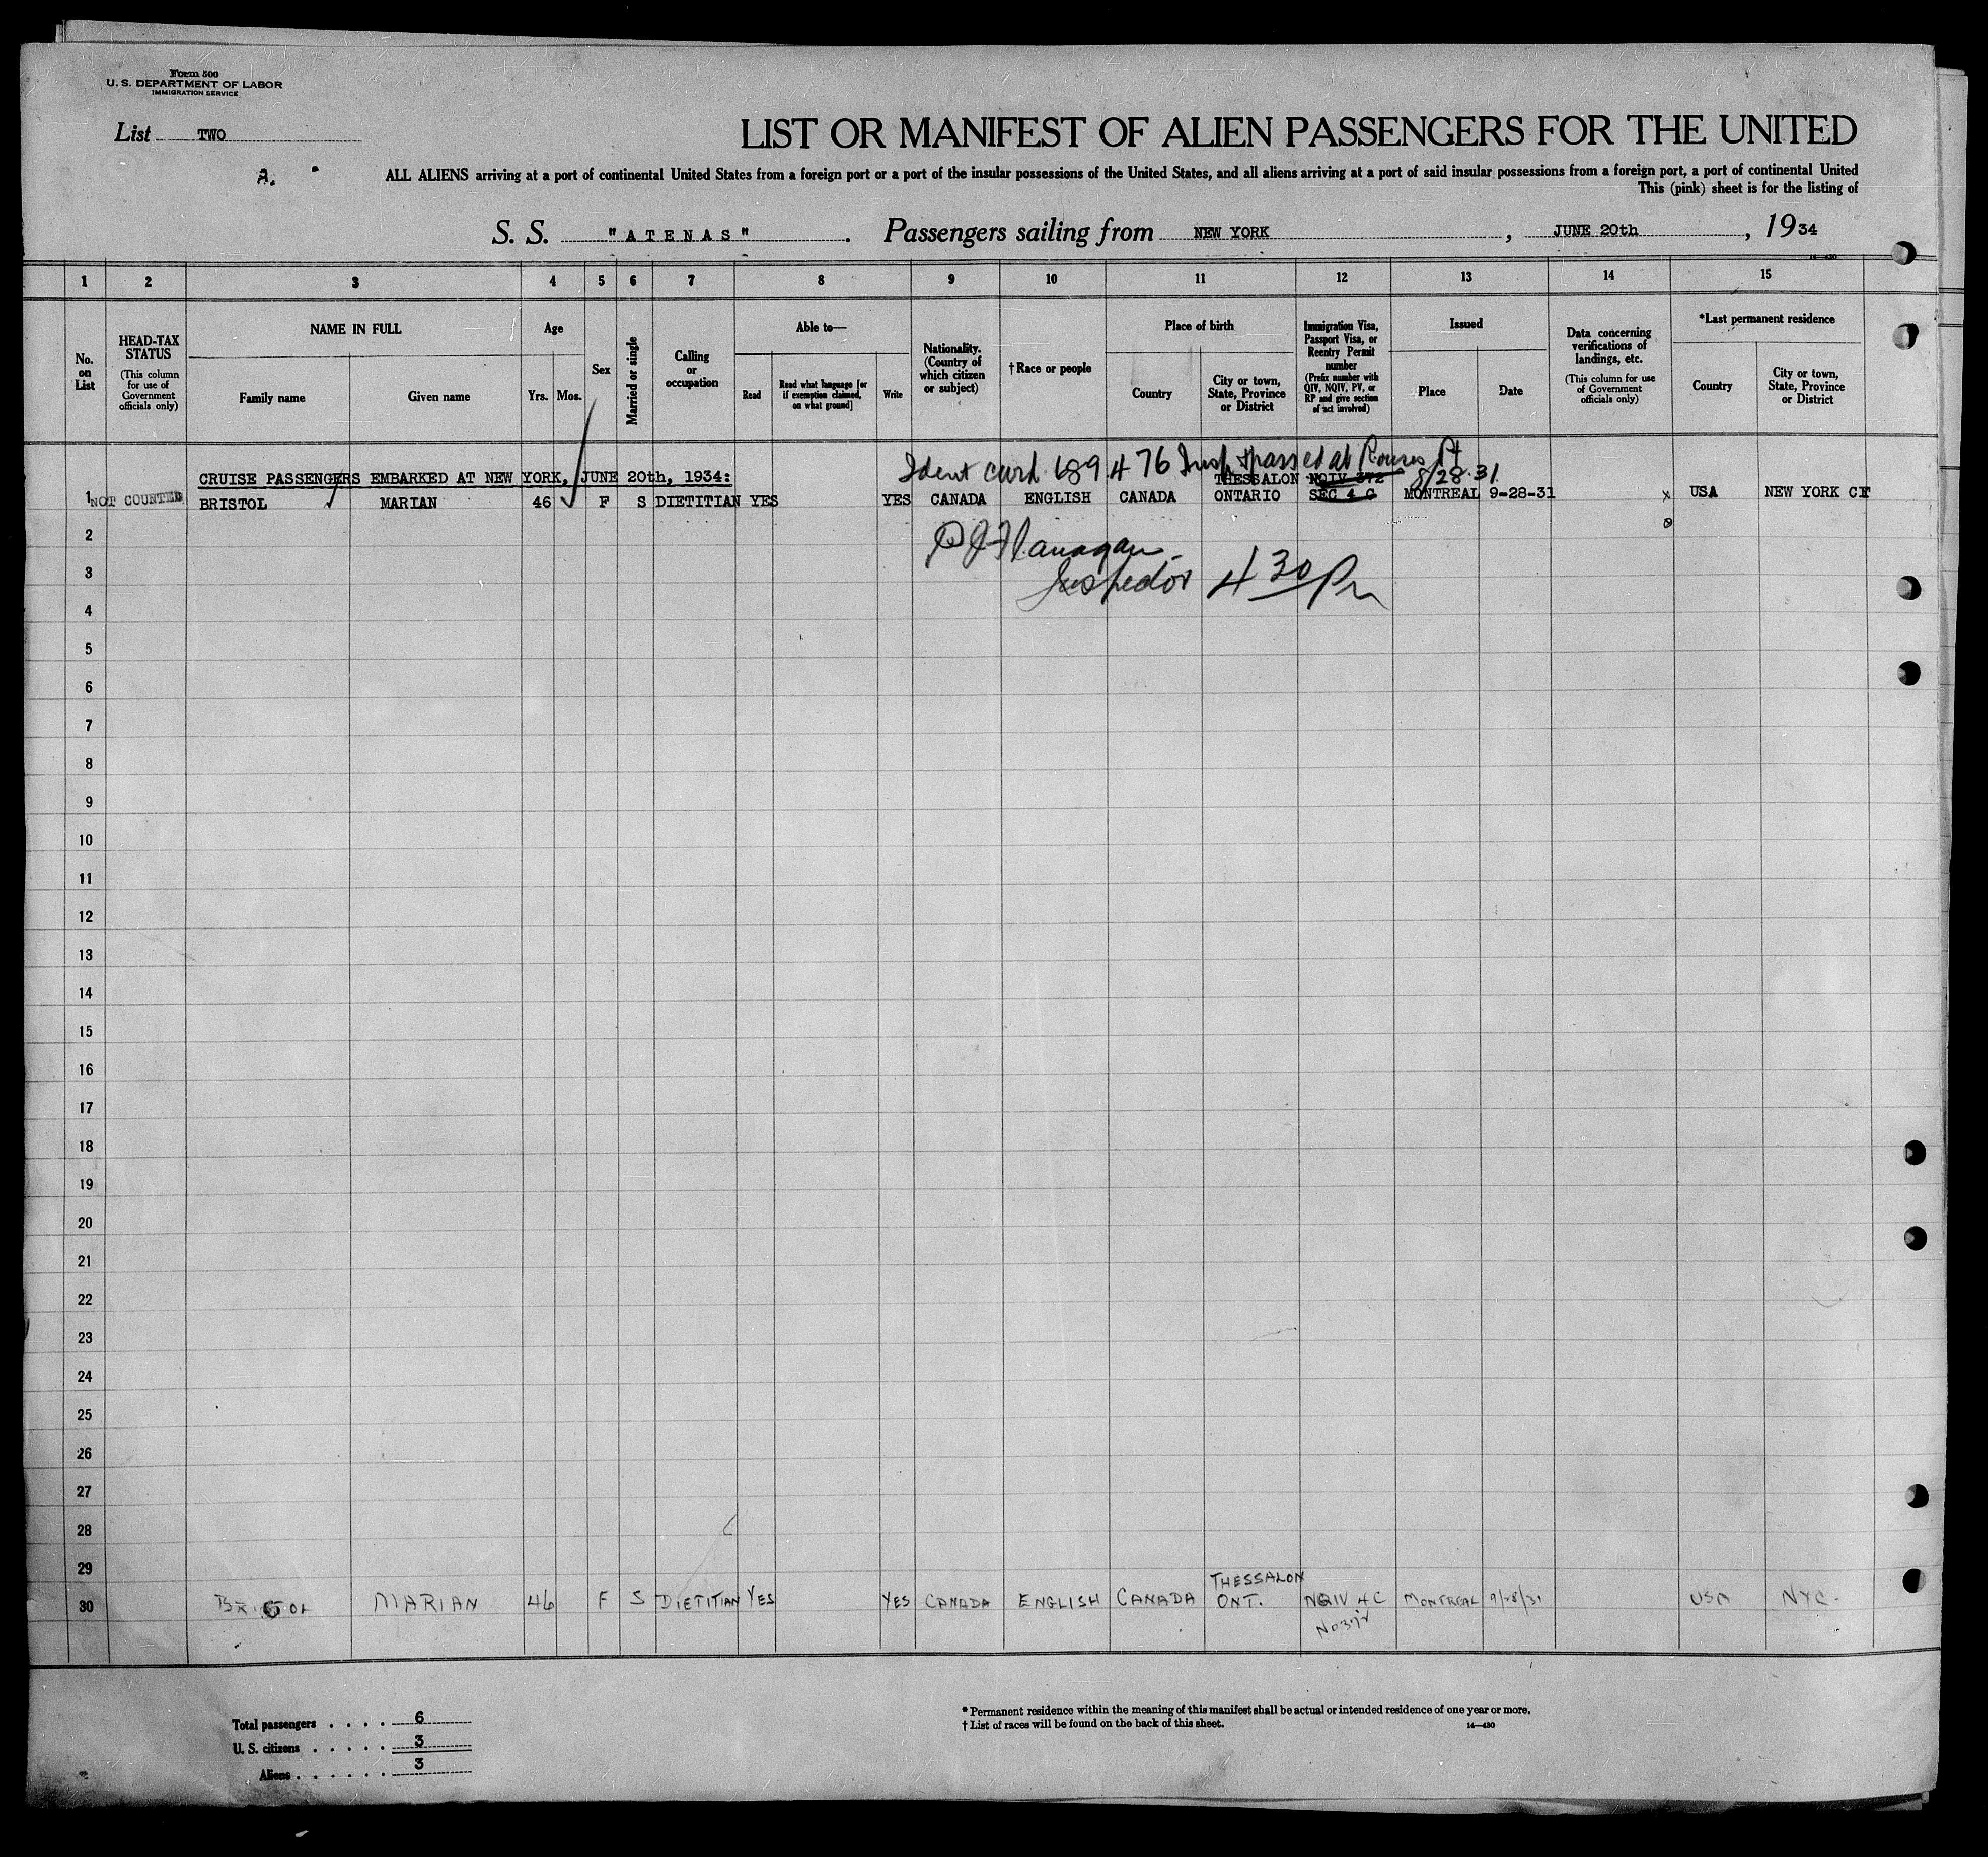 Form 500
U. S. DEPARTMENT OF LABOR
IMMIGRATION SERVICE
List TWO
2.
LIST OR MANIFEST OF ALIEN PASSENGERS FOR THE UNITED
ALL ALIENS arriving at a port of continental United States from a foreign port or a port of the insular possessions of the United States, and all aliens arriving at a port of said insular possessions from a foreign port, a port of continental United
This (pink) sheet is for the listing of
S. S. "ATENAS". Passengers sailing from NEW YORK, JUNE 20th, 1934
1 2 3 4 5 6 7 8 9 10 11 12 13 14 15
No. on List
HEAD-TAX STATUS
(This column for use of Government officials only)
NAME IN FULL
Family name
Given name
Age
Yrs. Mos.
Sex
Married or single
Calling or occupation
Able to—
Read
Read what language [or if exemption claimed, on what ground]
Write
Nationality. (Country of which citizen or subject)
†Race or people
Place of birth
Country
City or town, State, Province or District
Immigration Visa, Passport Visa, or Reentry Permit number
(Prefix number with QIV, NQIV, PV, or RP and give section of act involved)
Issued
Place
Date
Data concerning verifications of landings, etc.
(This column for use of Government officials only)
*Last permanent residence
Country
City or town, State, Province or District
Ident card 689476 Insp & passed at Rouses Pt
8/28.31
CRUISE PASSENGERS EMBARKED AT NEW YORK, JUNE 20th, 1934:
THESSALON NQIV 372
1 NOT COUNTED BRISTOL MARIAN 46 F S DIETITIAN YES YES CANADA ENGLISH CANADA ONTARIO SEC 4 C MONTREAL 9-28-31 x USA NEW YORK CY
Flanagan
Inspector 4 30 Pm
2
3
4
5
6
7
8
9
10
11
12
13
14
15
16
17
18
19
20
21
22
23
24
25
26
27
28
29
THESSALON
30 BRISTOL MARIAN 46 F S DIETITIAN YES YES CANADA ENGLISH CANADA ONT. NQIV 4C MONTREAL 9/28/31 USA NYC.
No 372
Total passengers . . . . 6
U. S. citizens . . . . . 3
Aliens . . . . . . 3
* Permanent residence within the meaning of this manifest shall be actual or intended residence of one year or more.
† List of races will be found on the back of this sheet.
14—430